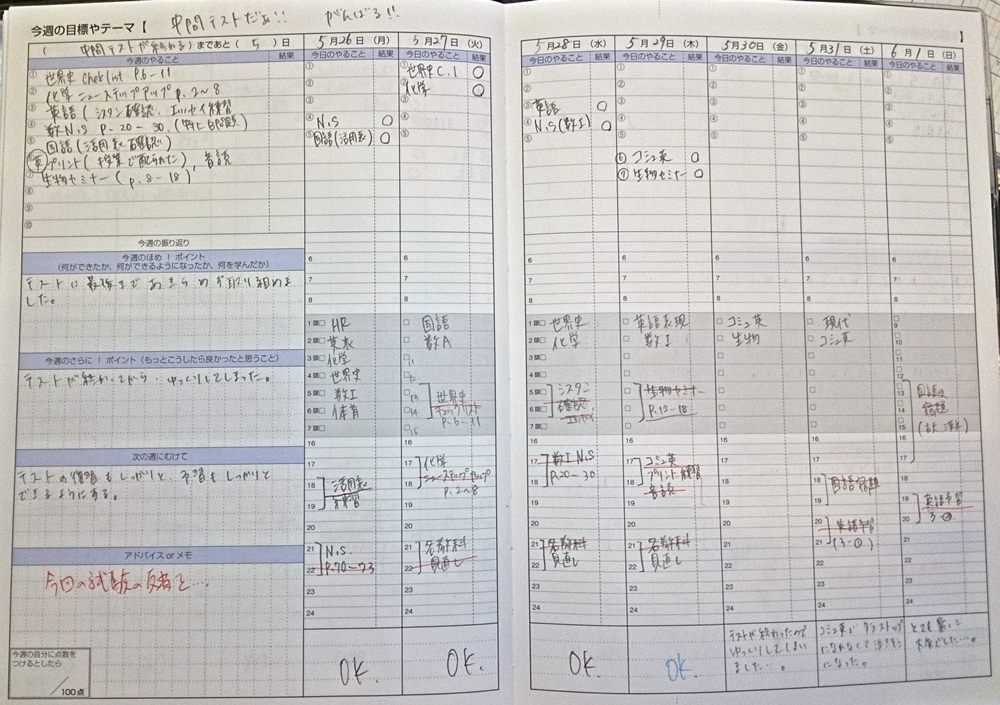 今週の目標やテーマ【 中間テストだぁ!! がんばる!! 】
( 中間テストが終わる ) まであと ( 5 ) 日
今週のやること 結果
① 世界史 Checklist P.6-11
② 化学 ニューステップアップ p.2~8
③ 英語 ( シスタン確認、
④ 数N.S P-20-30.
⑤ 国語 (活用表 確認)
⑥ プリント ( 授業で配られた ), 音読
⑦ 生物セミナー ( p.8-18 )
⑧
⑨
⑩
今週の振り返り
今週のほめ!ポイント
(何ができたか、何ができるようになったか、何を学んだか)
テストに最後まであきらめず取り組めま
した。
今週のさらに!ポイント(もっとこうしたら良かったと思うこと)
テストが終わってから…ゆっくりしてしまった。
次の週にむけて
テストの復習もしっかりと、予習もしっかりと
できるようにする。
アドバイス or メモ
今回の試験の反省を…
今週の自分に点数を
つけるとしたら
/100点
5月26日(月)
今日のやること 結果
④ N.S ○
⑤ 国語(活用表) ○
1限 HR
2限 英表
3限 化学
4限 世界史
5限 数I
6限 体育
7限
18 活用表
19 練習
21 N.S.
22 P.70-73
OK.
5月27日(火)
今日のやること 結果
① 世界史C.l ○
② 化学 ○
国語
数A
世界史
チェックリスト
P-6-11
17 化学
18 ニューステップアップ
p.2~8
21 名前科
22 見直し
OK.
5月28日(水)
今日のやること 結果
③ 英語 ○
④ N.S(数I) ○
1限 世界史
2限 化学
3限
4限
5限 シスタン
6限 確認
7限
17 数I N.S
18 P.20-30
21
22 見直し
OK
5月29日(木)
今日のやること 結果
⑥ コミュ英 ○
⑦ 生物セミナー ○
英語表現
数I
生物セミナー
P.12-18
17 コミュ英
18 プリント練習
音読
21
22 見直し
OK
5月30日(金)
今日のやること 結果
コミュ英
生物
テストが終わったので
ゆっくりしてしまい
ました…。
5月31日(土)
今日のやること 結果
現代
コミュ英
18 国語宿題
20 英語予習
21 (3-②)
コミュ英で クラストップ
になれなくて泣きそう
になった。
6月1日(日)
今日のやること 結果
国語の
宿題
19 英語予習
20 3-②
とても暑いこ